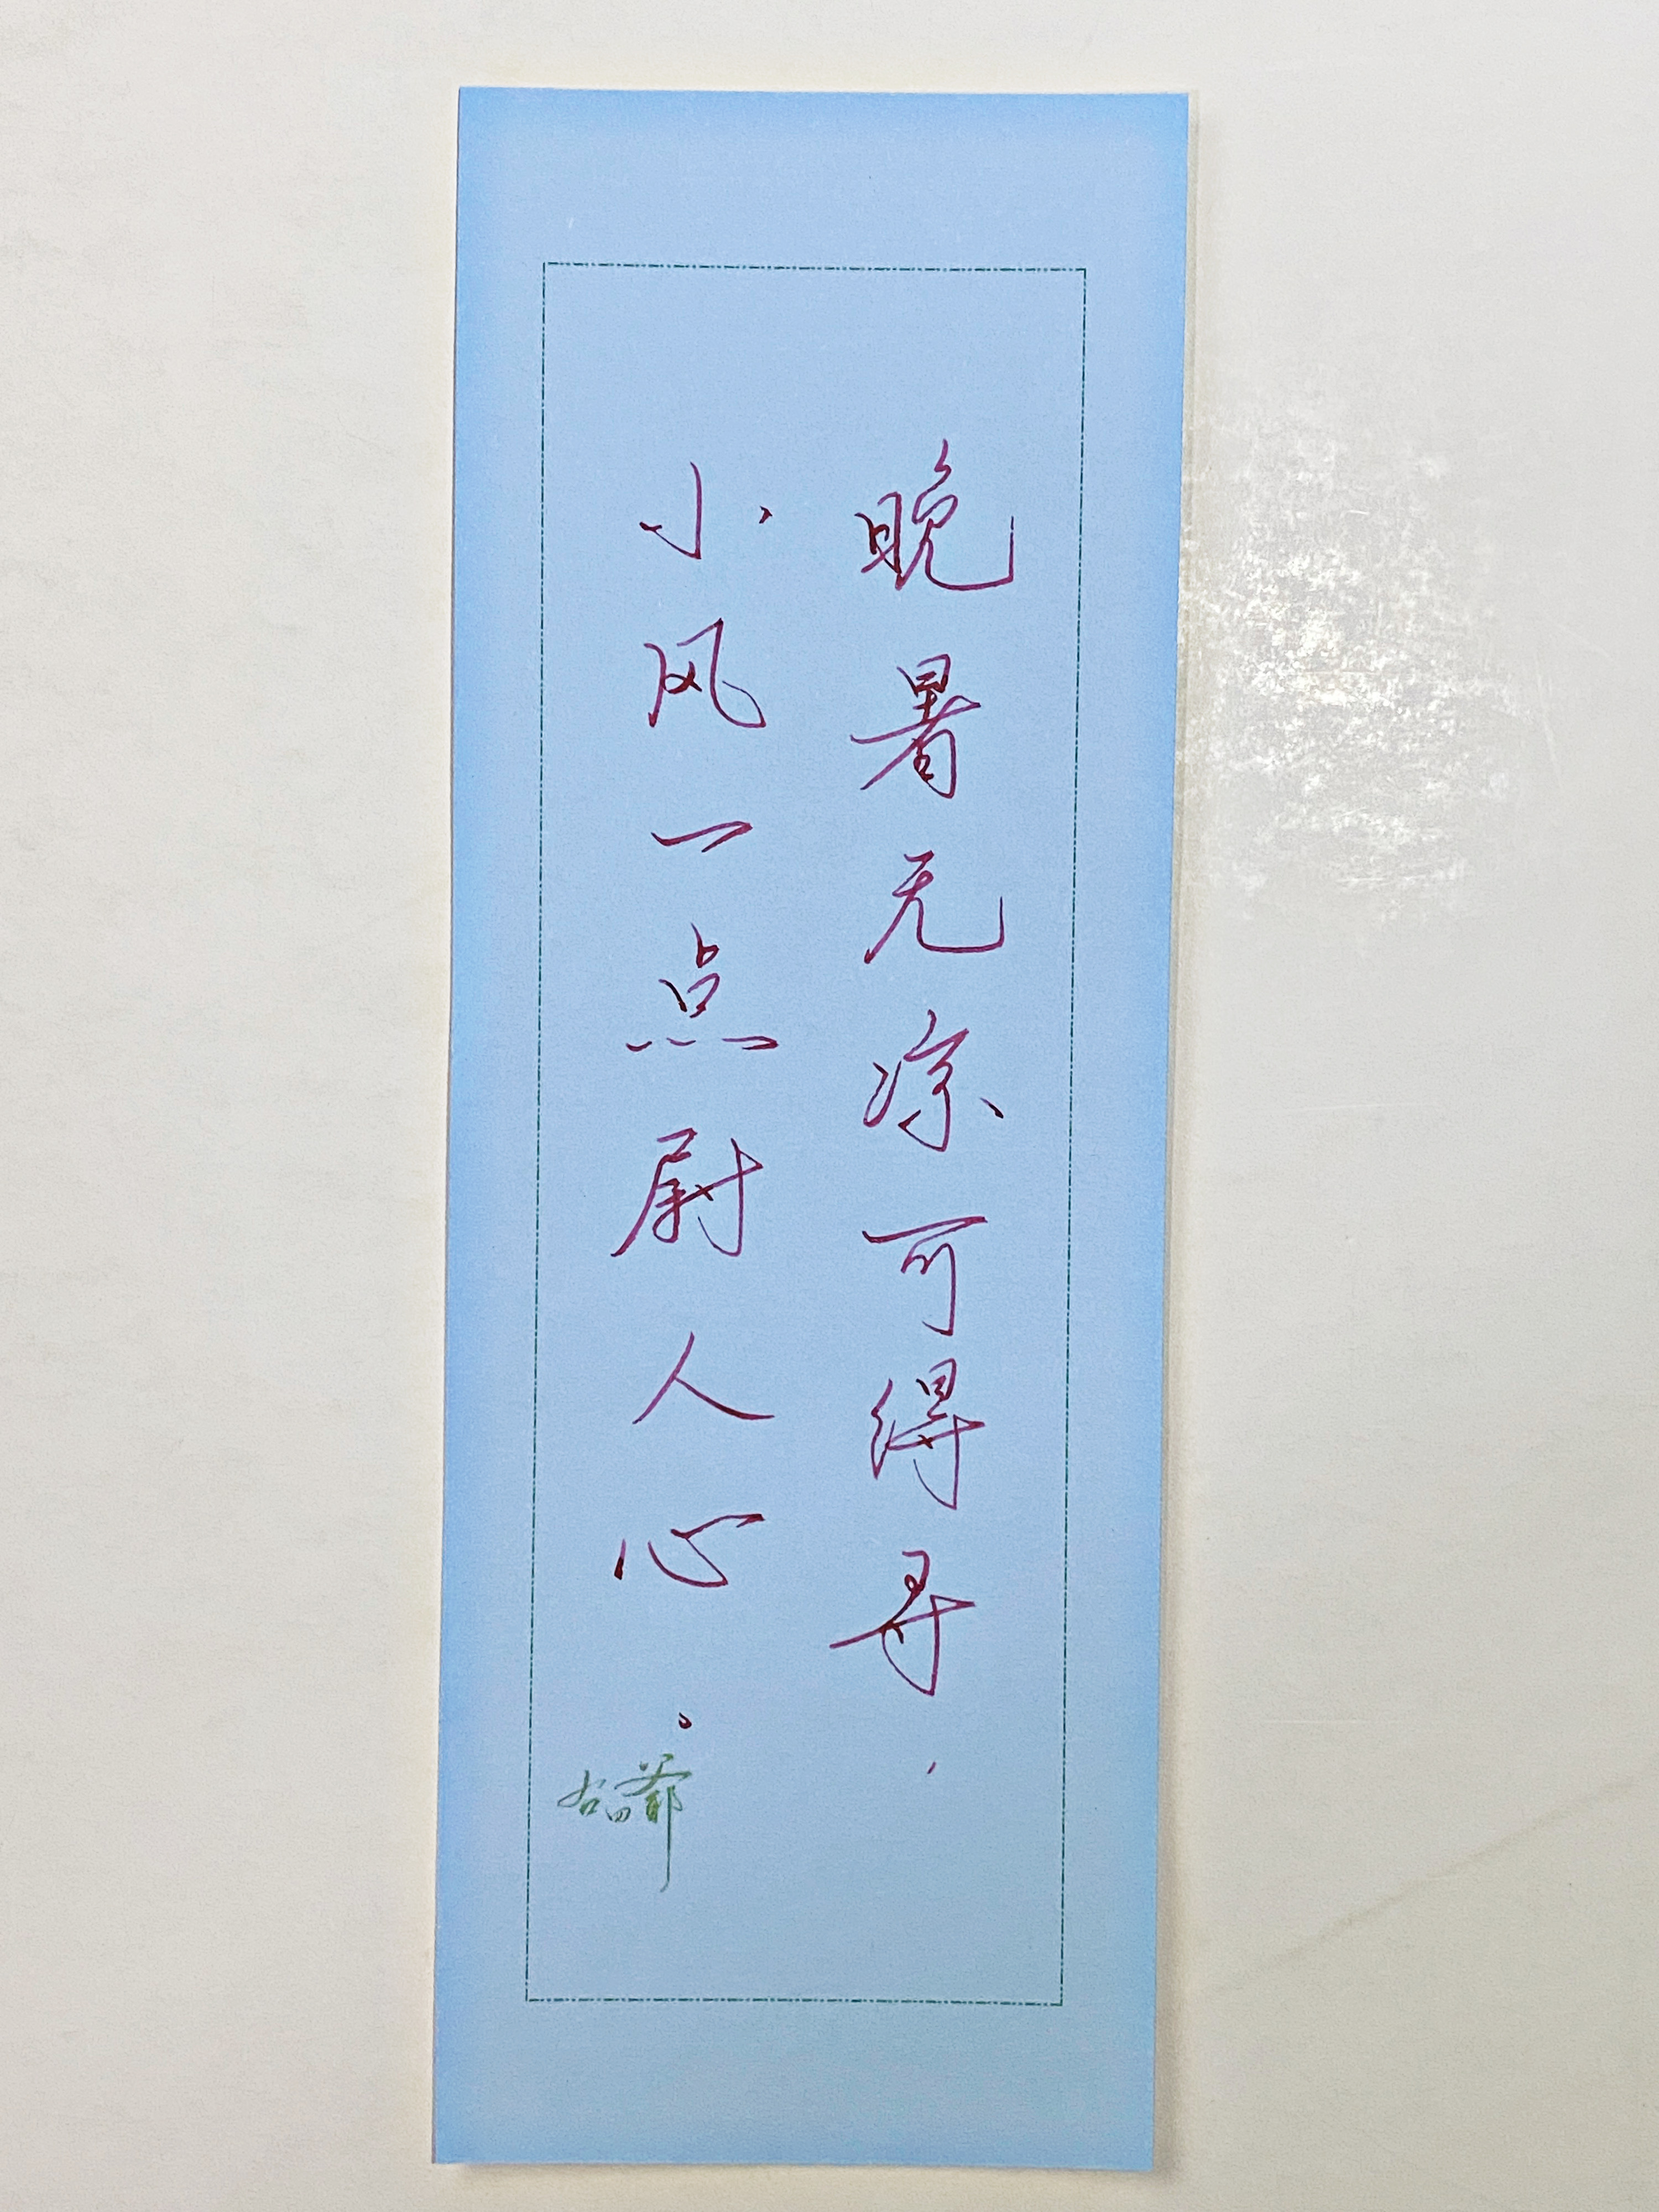 晚暑无凉可得寻，
小风一点尉人心。